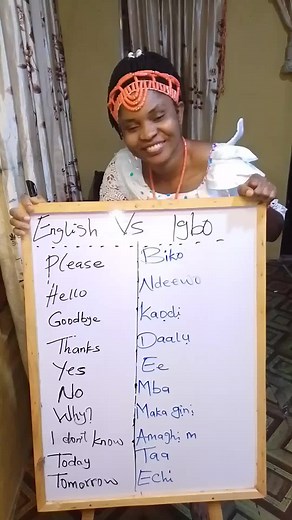 English Vs Igbo
Please Biko
Hello Ndeewo
Goodbye Kaọdị
Thanks Daalụ
Yes Ee
No Mba
Why? Maka gịnị
I don't know Amaghị m
Today Taa
Tomorrow Echi